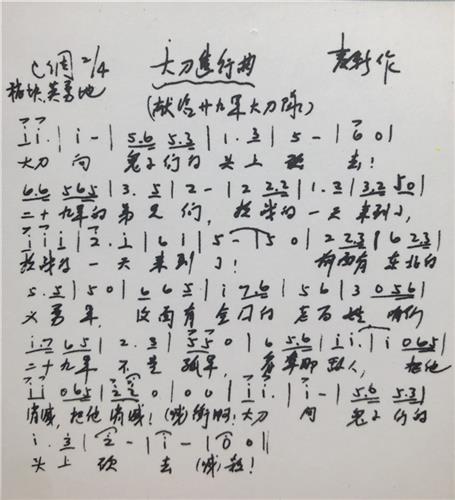 C调 2/4 大刀進行曲 麦新作
稍快.英勇地
(献给廿九军大刀队)
i i. | i - | 5.6 5.3 | 1.3 | 5 - | 6 0 |
大刀 向 鬼子们的 头上 砍 去!
6.6 5 6 5 | 3. 5 | 2 - | 2 2.2 | 1.3 | 3.2 5 0 |
二十九军的 弟兄 们, 抗战的 一天 来到了,
i i i | 2. i | 6 i | 5 - | 5 0 | 2 2 3 | 6 2 3 |
抗战的 一天 来到 了! 前面有 东北的
5. 5 | 5 0 | 6 6 5 | i 7 6 | 5 6 | 3 0 5 6 |
义勇 军, 后面有 全国的 老百姓 咱们
i.7 6 5 | 2. 3 | 5 5 0 | 6 5.6 | i i. | i 0 6 5 |
二十九军 不是 孤军, 看準那 敌人, 把他
i i 0 6 5 | 2 2 0 | 0 0 | i i. | i - | 5.6 5.3 |
消滅, 把他 消滅! (喊)衝啊! 大刀 向 鬼子们的
i. 3 | 2 - | i - | 0 0 ||
头上 砍 去 (喊)殺!